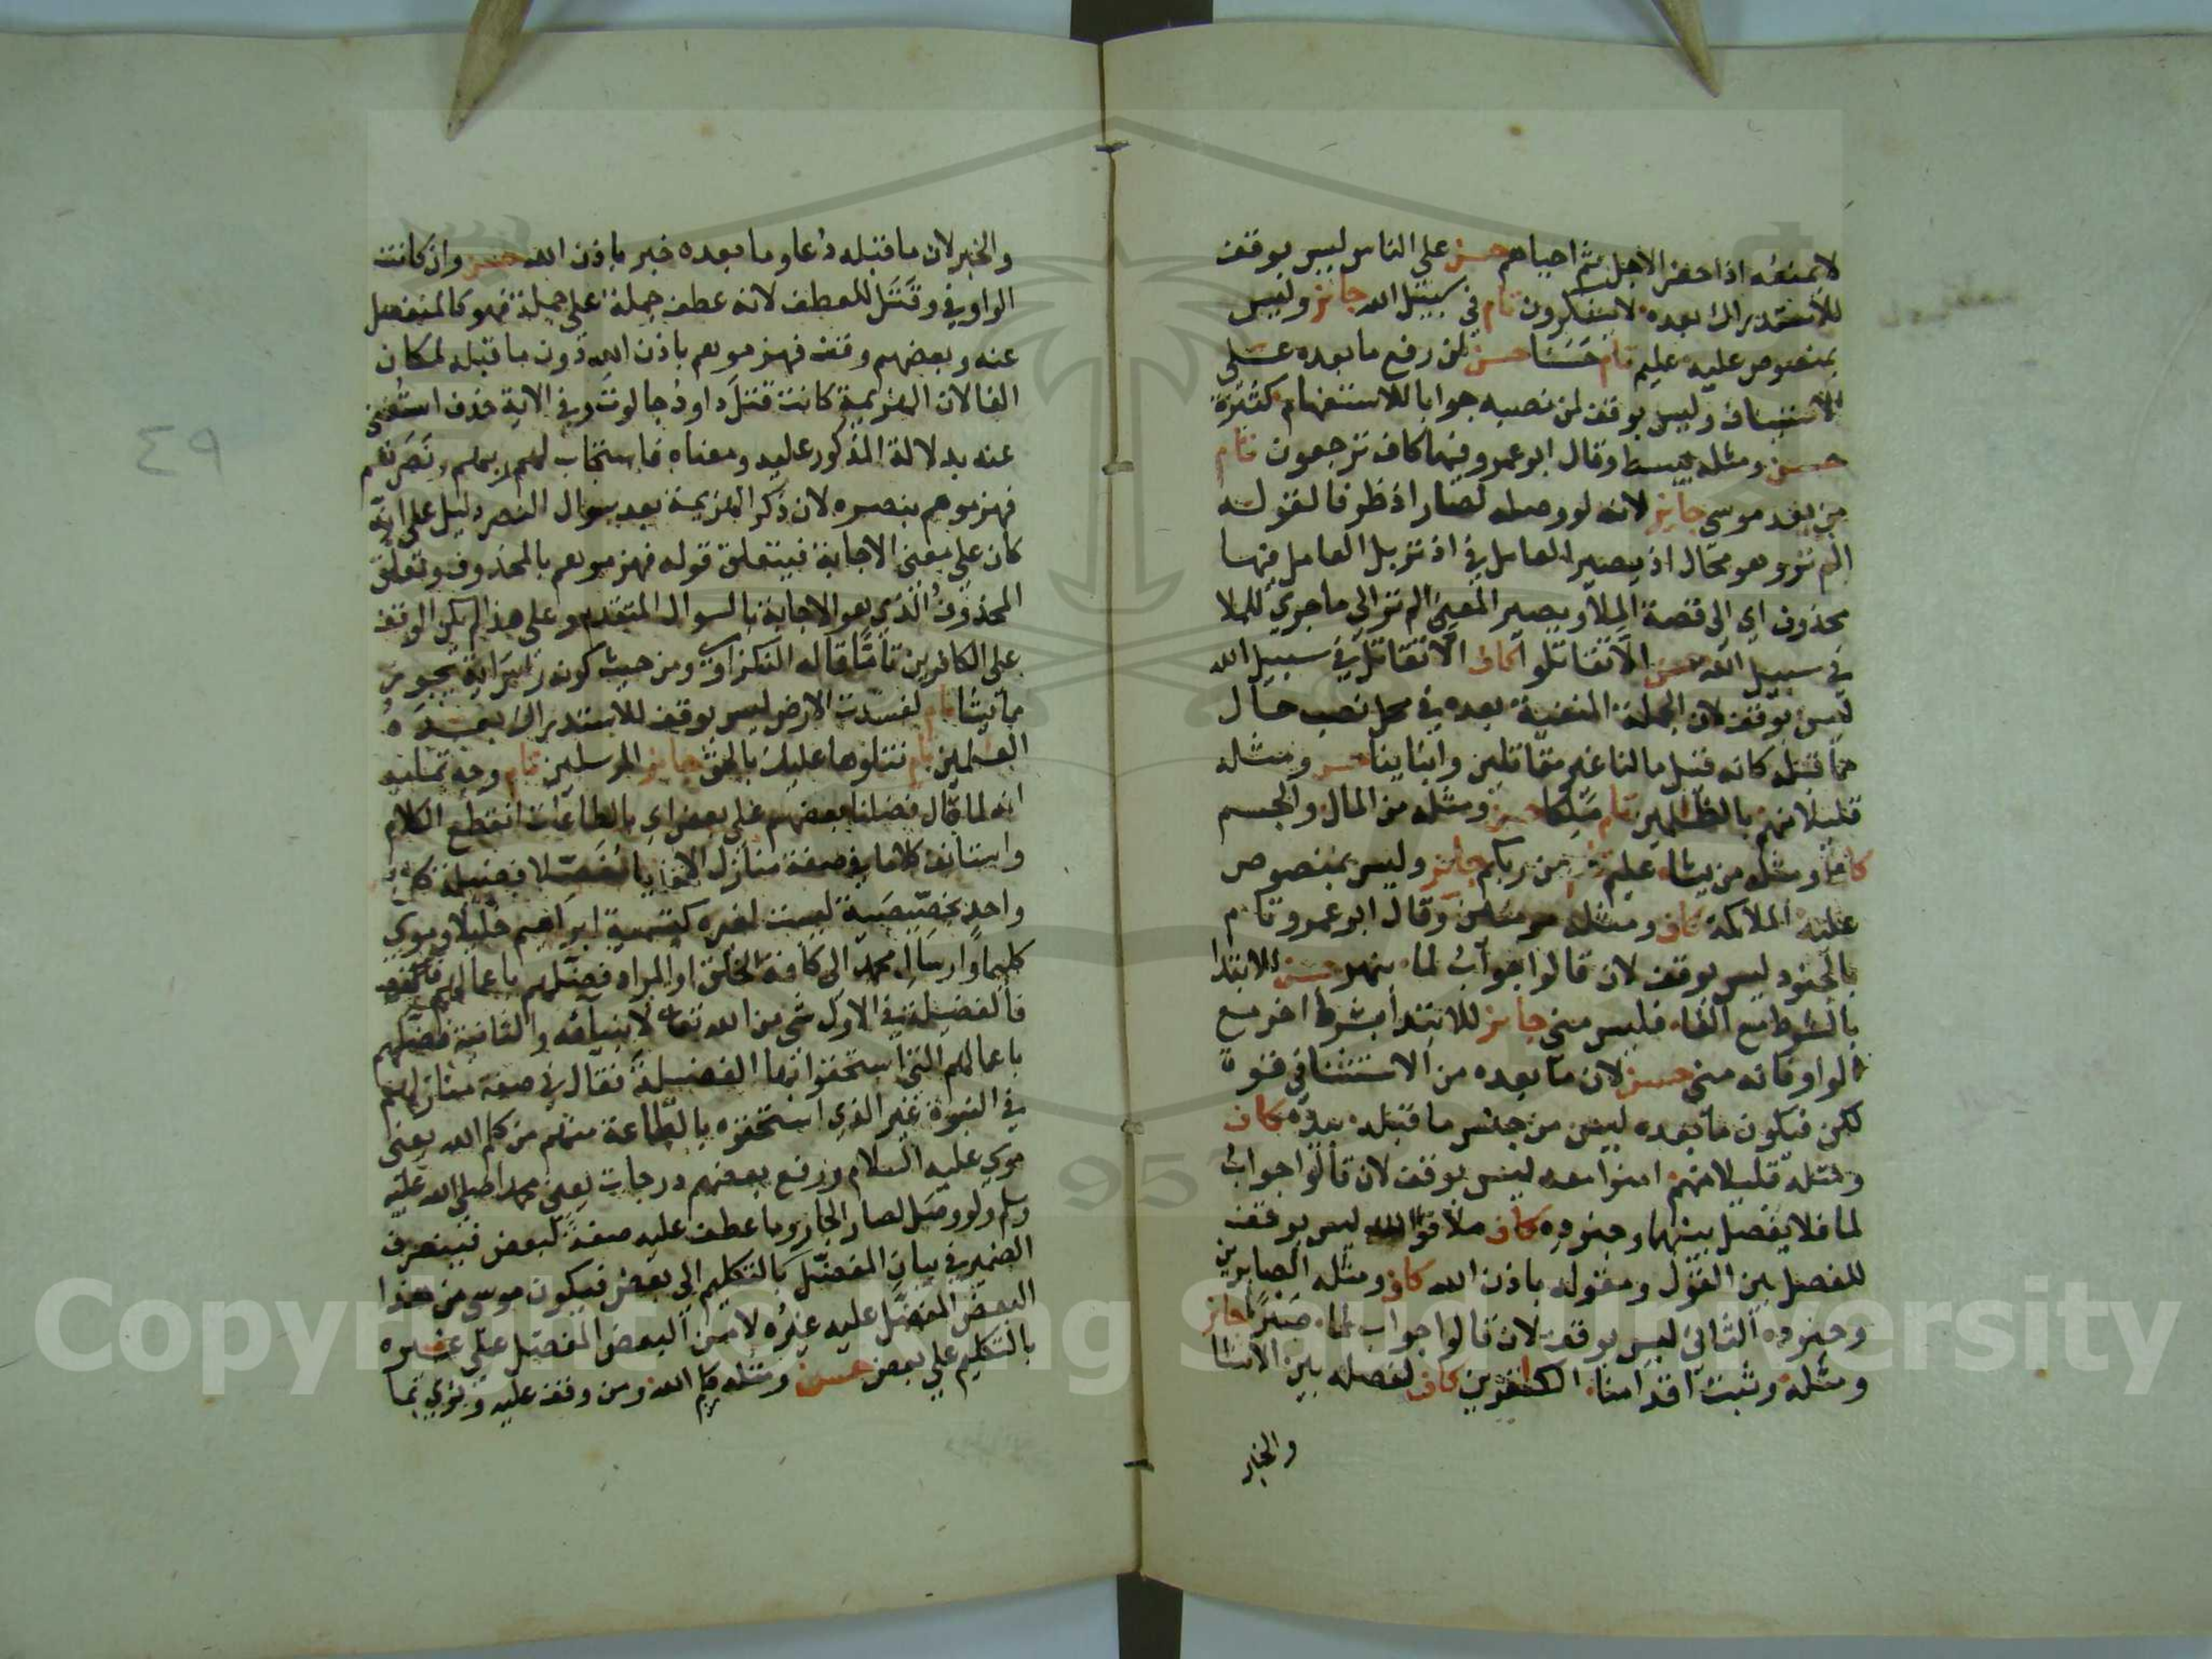 لايمنعه اذا حضر الاجل ثم احياهم حسن على الناس ليس بوقف
للاستدراك بعده لايشكرون تام في سبيل الله جائز وليس
بمنصوص عليه عليم تام حسنا حسن لمن رفع ما بعده على
الاستيناف وليس بوقف لمن نصبه جوابا للاستفهام كثيرة
حسن ومثله يبسط وقال ابو عمرو فيهما كاف ترجعون تام
من بعد موسى جائز لانه لو وصله لصار اذ ظرفا لقوله
الم تر وهو محال اذ يصير العامل في اذ تر بل العامل فيها
محذوف اي الى قصة الملأ ويصير المعنى الم تر الى ما جرى للملا
في سبيل الله حسن الا تقاتلوا كاف الا نقاتل في سبيل الله
ليس بوقف لان الجملة المنفية بعده في محل نصب حال
مما قبله كانه قيل ما لنا غير مقاتلين وابناينا حسن ومثله
قليلا منهم بالظلمين تام ملكا حسن ومثله من المال والجسم
كاف ومثله من يشاء عليم تام من ربكم جائز وليس بمنصوص
عليه الملائكة كاف ومثله مومنين وقال ابو عمرو تام
بالجنود ليس بوقف لان قالوا جواب لما بنهر حسن للابتدا
بالشرط مع الفاء فليس مني جائز للابتدا بشرط اخر مع
الواو فانه مني حسن لان ما بعده من الاستثنا في قوة
لكن فيكون ما بعده ليس من جنس ما قبله بيده كاف
ومثله قليلا منهم امنوا معه ليس بوقف لان قالوا جواب
لما فلا يفصل بينهما وجنوده كاف ملاقوا الله ليس بوقف
للفصل بين القول ومقوله باذن الله كاف ومثله الصابرين
وجنوده الثاني ليس بوقف لان قالوا جواب لما صبرا جائز
ومثله وثبت اقدامنا الكفرين كاف لفصله بين الانشا
والخبر
والخبر لان ما قبله دعا وما بعده خبر باذن الله حسن وان كانت
الواو في وقتل للعطف لانه عطف جملة على جملة فهو كالمنفصل
عنه وبعضهم وقف فهزموهم باذن الله دون ما قبله لمكان
الفا لان الهزيمة كانت قتل داود جالوت وفي الاية حذف استغنى
عنه بدلالة المذكور عليه ومعناه فاستجاب لهم ربهم ونصرهم
فهزموهم بنصره لان ذكر الهزيمة بعد سوال النصر دليل على انه
كان على معنى الاجابة فيتعلق قوله فهزموهم بالمحذوف وتعلق
المحذوف الذي هو الاجابة بالسوال المتقدم وعلى هذا لم يكن الوقف
على الكافرين تاما قاله النكزاوي ومن حيث كونه راس اية يجوز
مايشا تام لفسدت الارض ليس بوقف للاستدراك بعده
العلمين تام نتلوها عليك بالحق جائز المرسلين تام وجه تماميه
انه لما قال فضلنا بعضهم على بعض اي بالطاعات انقطع الكلام
واستانف كلاما في صفة منازل الانبيا مفصلا فضيلة كل
واحد بخصيصية ليست لغيره كتسمية ابراهيم خليلا وموسى
كليما وارسال محمد الى كافة الخلق او المراد فضلهم باعمالهم
فالفضيلة في الاول شي من الله تعالى لانبيائه والثانية فضلهم
باعمالهم التي استحقوا بها الفضيلة فقال في صفة منازلهم
في النبوة غير الذي استحقوه بالطاعة منهم من كلم الله يعني
موسى عليه السلام ورفع بعضهم درجات يعني محمدا صلى الله عليه
وسلم ولو وصل لصار الجار وما عطف عليه صفة لبعض فينصرف
الضمير في بيان المفضل بالتكليم الى بعض فيكون موسى من هذا
البعض المفضل عليه غيره لا من البعض المفضل على غيره
بالتكليم على بعض حسن ومثله كلم الله ومن وقف عليه ونوى بما
٤٩
Copyright © King Saud University
1957